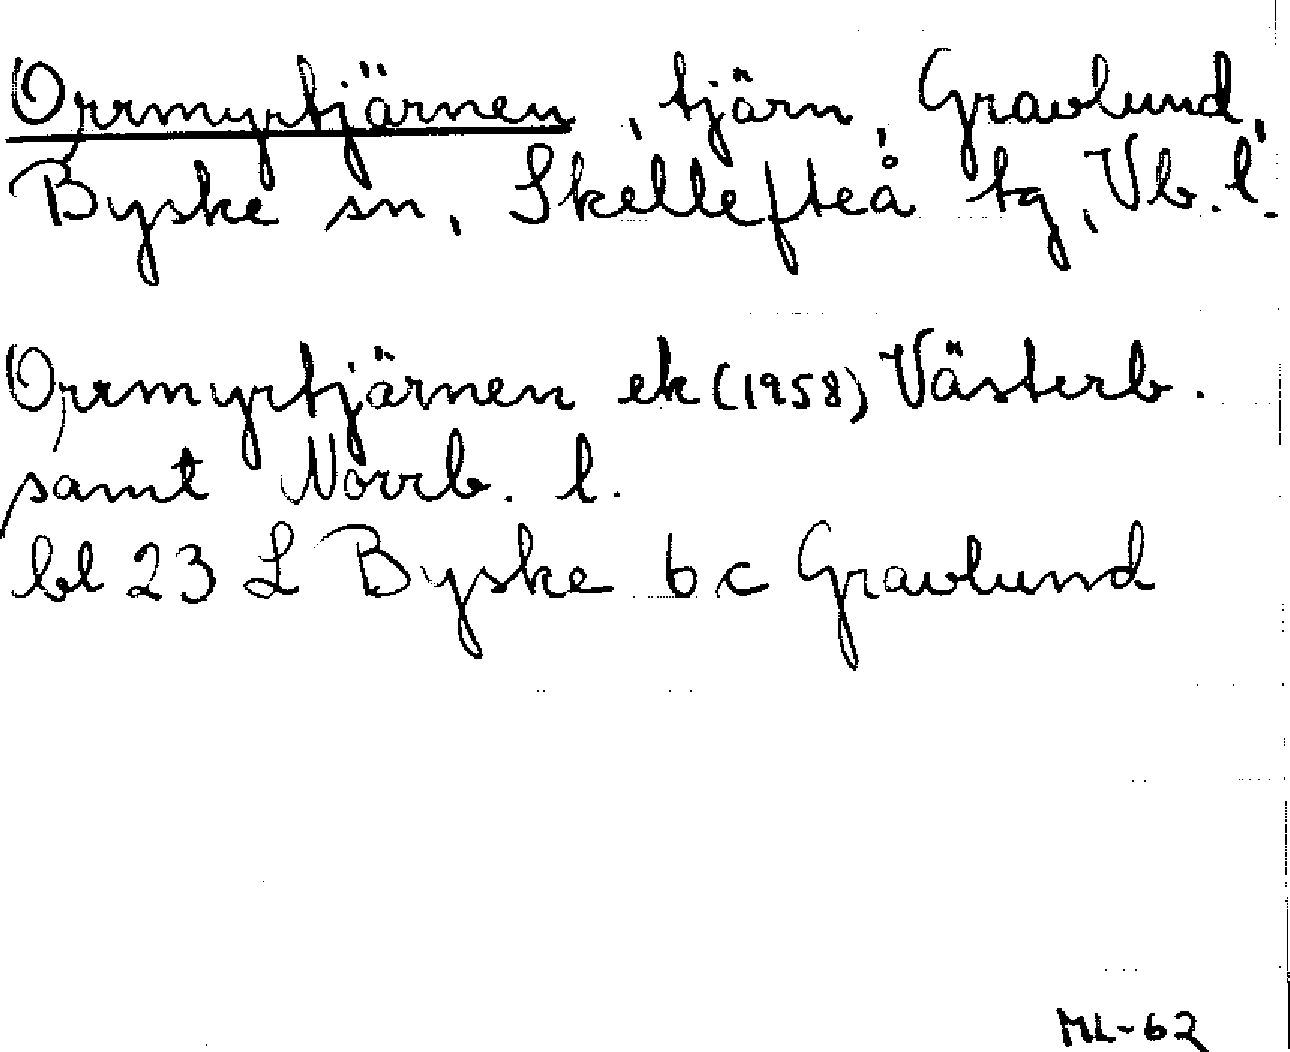 Orrmyrtjärnen, tjärn, Gravlund,
Byske sn, Skellefteå tg, Vb. l.
Orrmyrtjärnen ek (1958) Västerb.
samt Norrb. l.
bl 23 L Byske b c Gravlund
ML-62